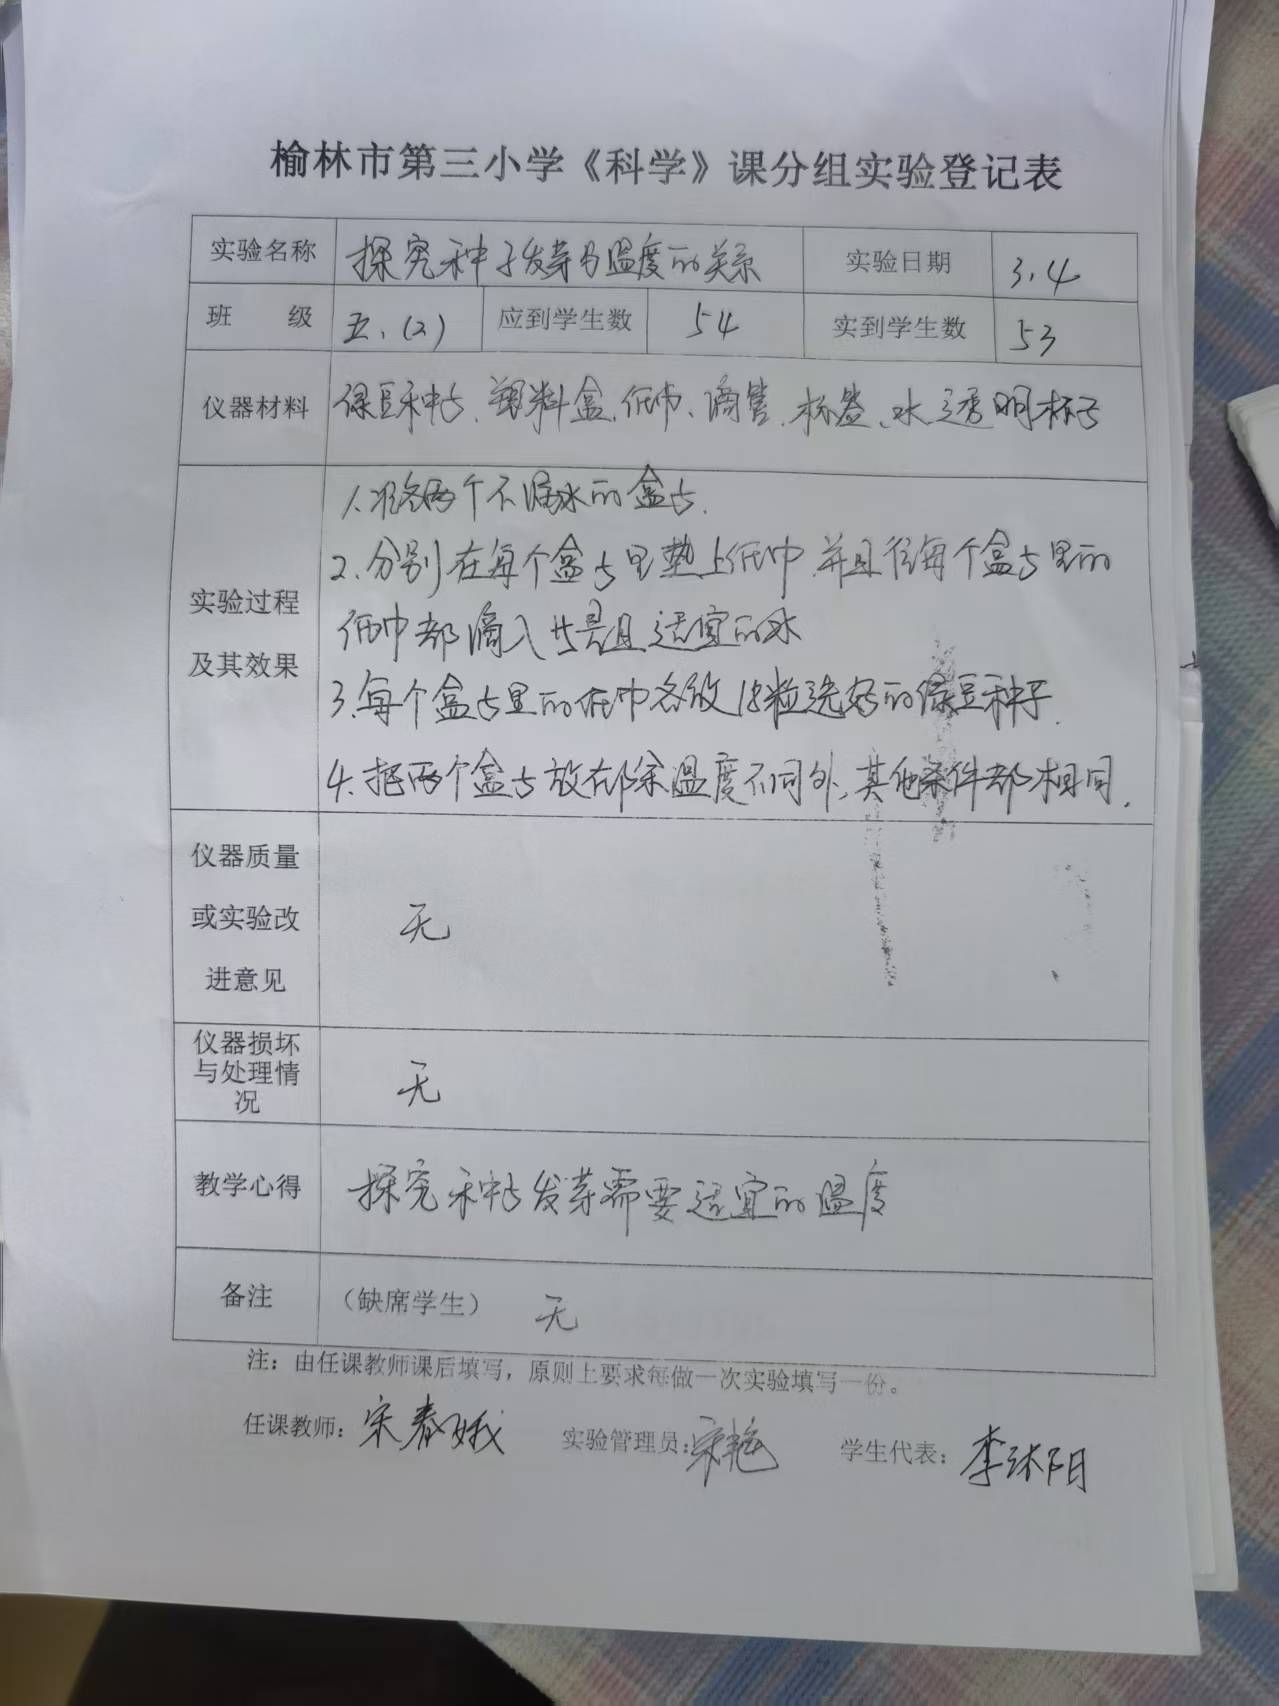 榆林市第三小学《科学》课分组实验登记表
实验名称 探究种子发芽与温度的关系 实验日期 3.4
班 级 五、(2) 应到学生数 54 实到学生数 53
仪器材料 绿豆种子、塑料盒、纸巾、滴管、标签、水、透明杯子
1.准备两个不漏水的盒子.
2.分别在每个盒子里垫上纸巾,并且往每个盒子里的
实验过程
纸巾都滴入等量且适宜的水
及其效果
3.每个盒子里的纸巾各放 粒选好的绿豆种子.
4.把两个盒子放在除温度不同外,其他条件都相同.
仪器质量
或实验改
无
进意见
仪器损坏
与处理情
况
无
教学心得 探究种子发芽需要适宜的温度
备注 (缺席学生) 无
注:由任课教师课后填写,原则上要求每做一次实验填写一份。
任课教师:宋春娥 实验管理员:宋艳 学生代表:李沐阳